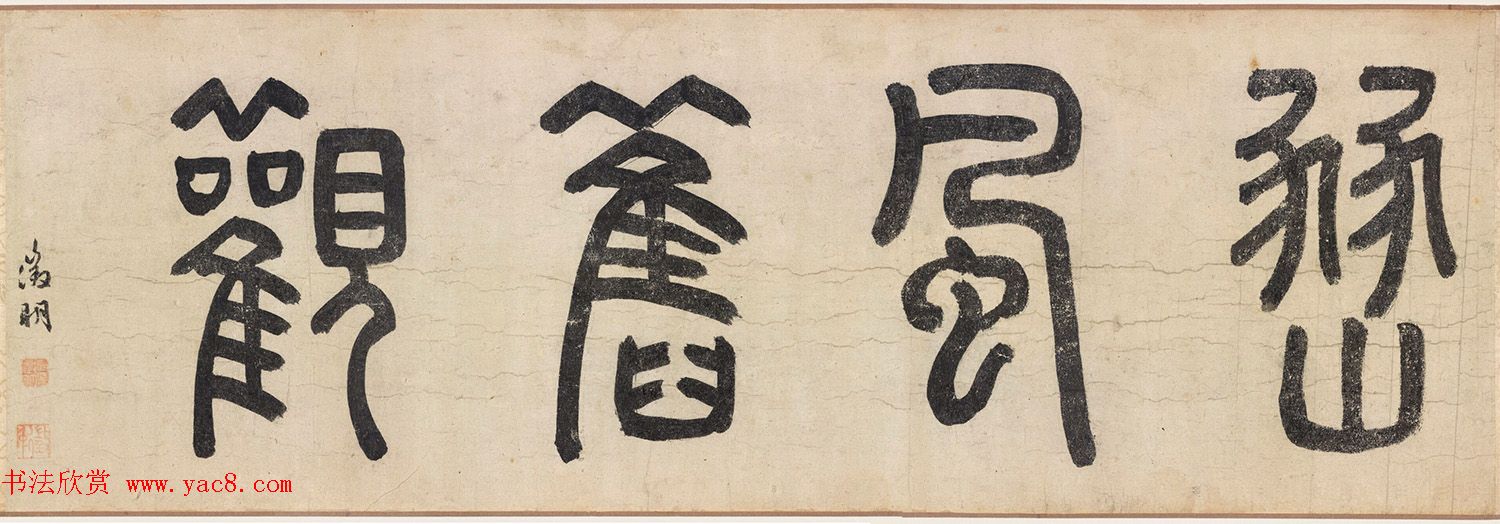 豳風舊觀
徵明
书法欣赏 www.yac8.com